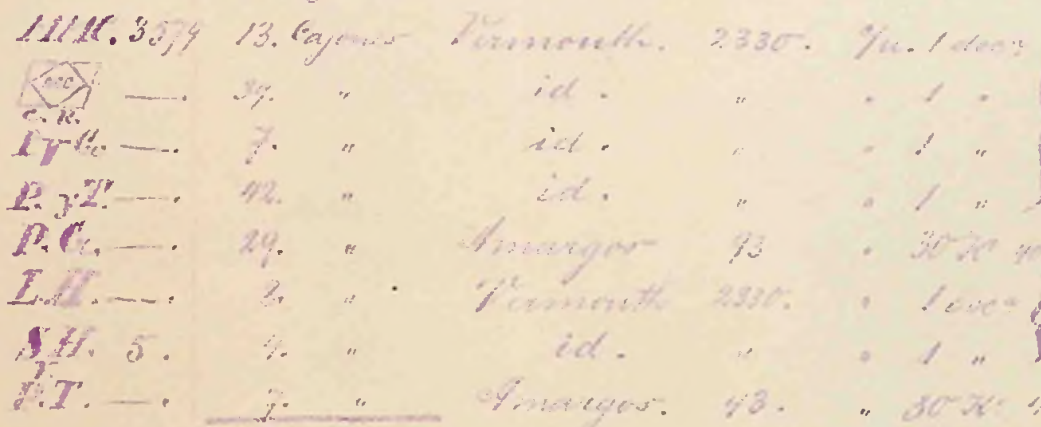 13. Cajones Vermouth. 2330. c/u. 1 doca
— . 39. " id . " " 1 "
C. R.
— . 7. " id . " " 1 "
P. y T. — . 42. " id . " " 1 "
P. G. — . 29. " Amargos 93 " 30 K
L. H. — . 2. " Vermouth 2330. " 1 doca
S. H. 5 . 4. " id . " " 1 "
P. T. — . 7. " Amargos. 93. " 30 K